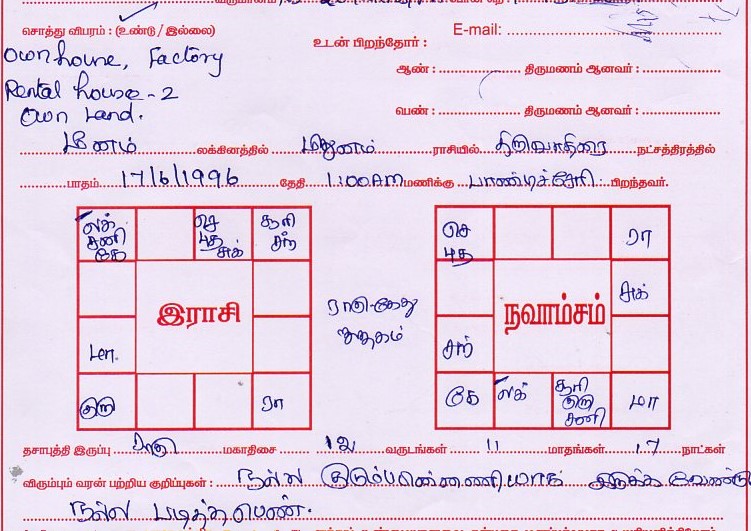 சொத்து விபரம் : (உண்டு / இல்லை)
E-mail:
உடன் பிறந்தோர் :
Own house, Factory
ஆண் : திருமணம் ஆனவர் :
Rental house - 2
பெண் : திருமணம் ஆனவர் :
Own Land.
மீனம் லக்கினத்தில் மிதுனம் ராசியில் திருவாதிரை நட்சத்திரத்தில்
பாதம் 17/6/1996 தேதி 1:00AM மணிக்கு பாண்டிச்சேரி பிறந்தவர்.
லக் சனி கே
செ புத சுக்
சூரி சந்
மா
குரு
ரா
இராசி
ராகு-கேது ஜாதகம்
செ புத
ரா
சுக்
சந்
கே
லக்
சூரி குரு சனி
மா
நவாம்சம்
தசாபுத்தி இருப்பு ராகு மகாதிசை 12 வருடங்கள் 11 மாதங்கள் 17 நாட்கள்
விரும்பும் வரன் பற்றிய குறிப்புகள் : நல்ல குடும்ப இருக்க வேண்டும்
நல்ல படித்த பெண்.